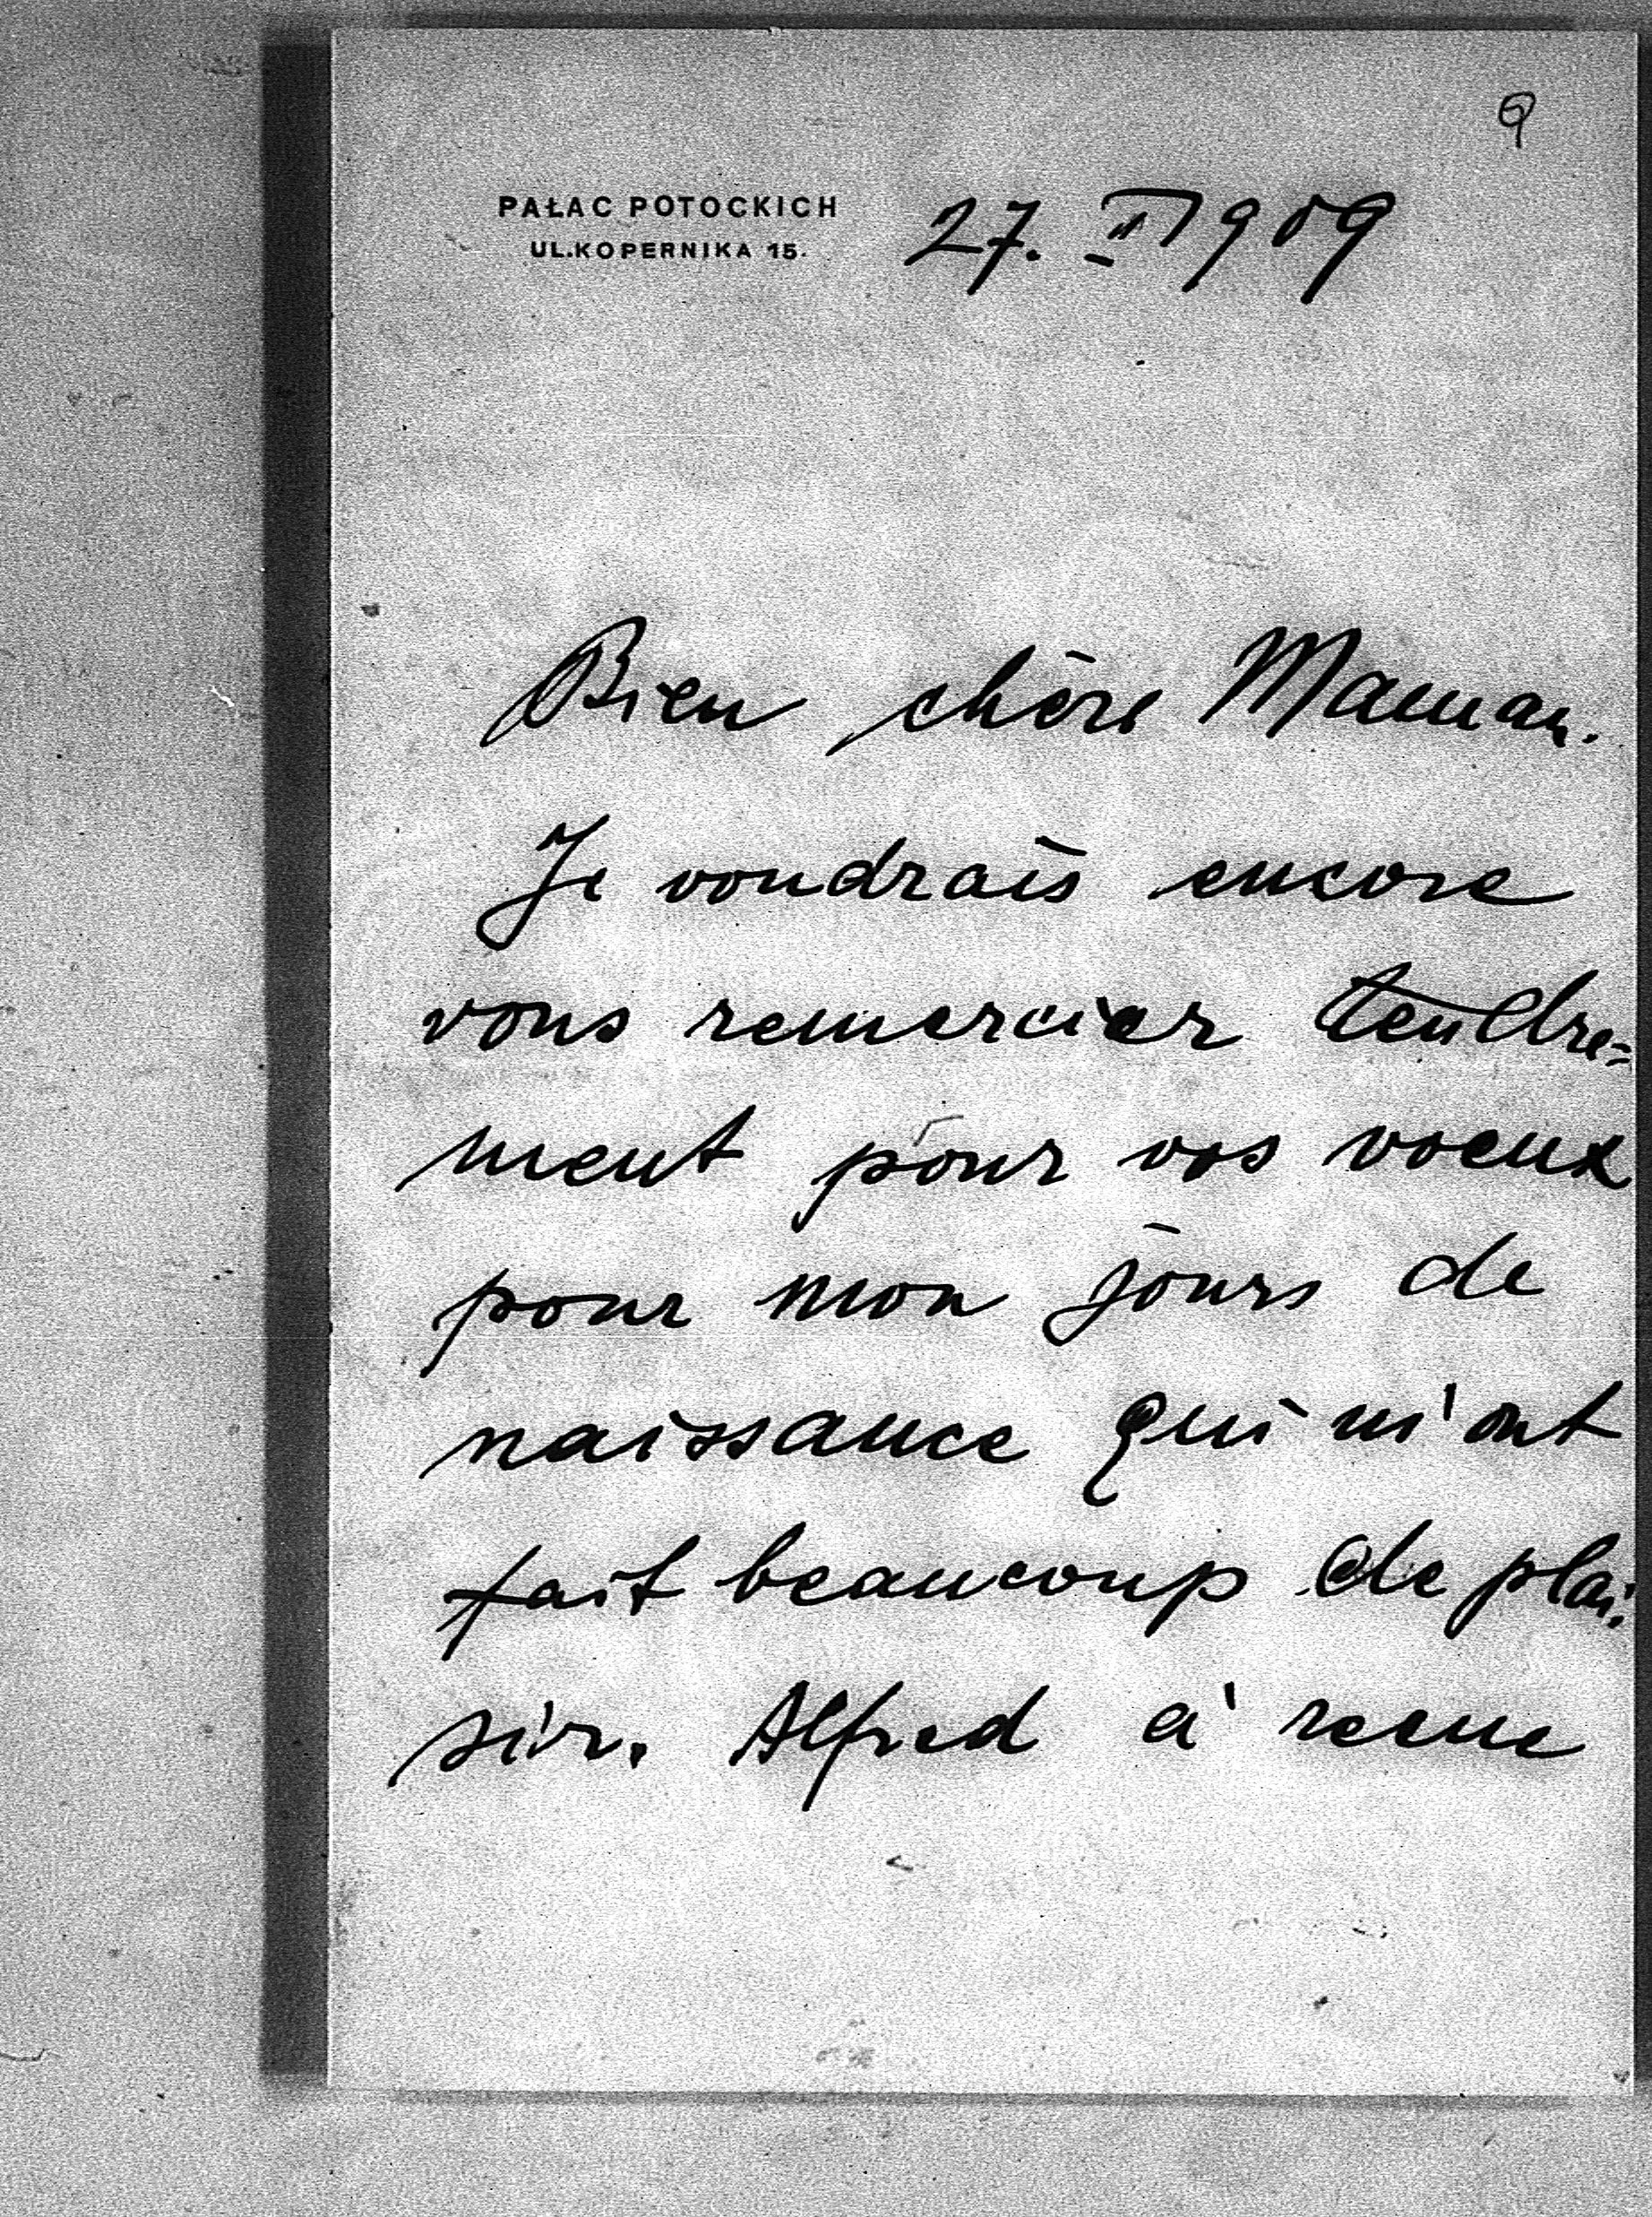 9
PAŁAC POTOCKICH 27. II 1909
UL.KOPERNIKA 15.
Bien chère Maman.
Je voudrais encore
vous remercier tendre=
ment pour vos voeux
pour mon jours de
naissance qui m'ont
fait beaucoup de plai-
sir. Alfred à recue